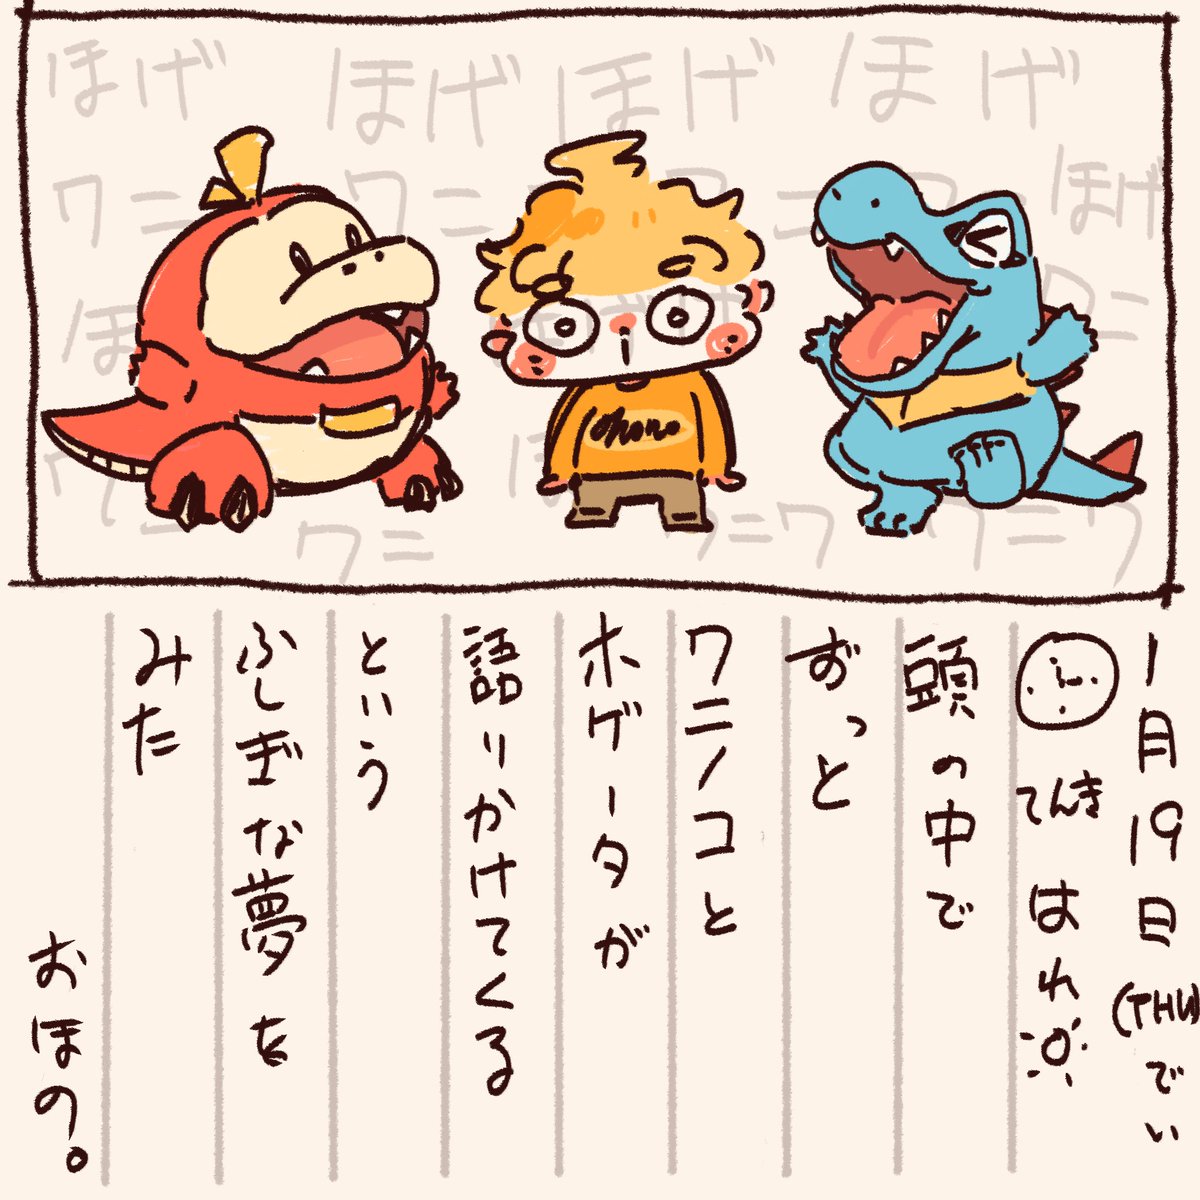 ほげ ほげ ほげ ほげ
ワニ ワニ ほげ
ワニ
ワニ ワニワニワ
ohono
1月19日(THU)でい
てんき はれ
頭の中で
ずっと
ワニノコと
ホゲータが
語りかけてくる
という
ふしぎな夢を
みた
おほの。